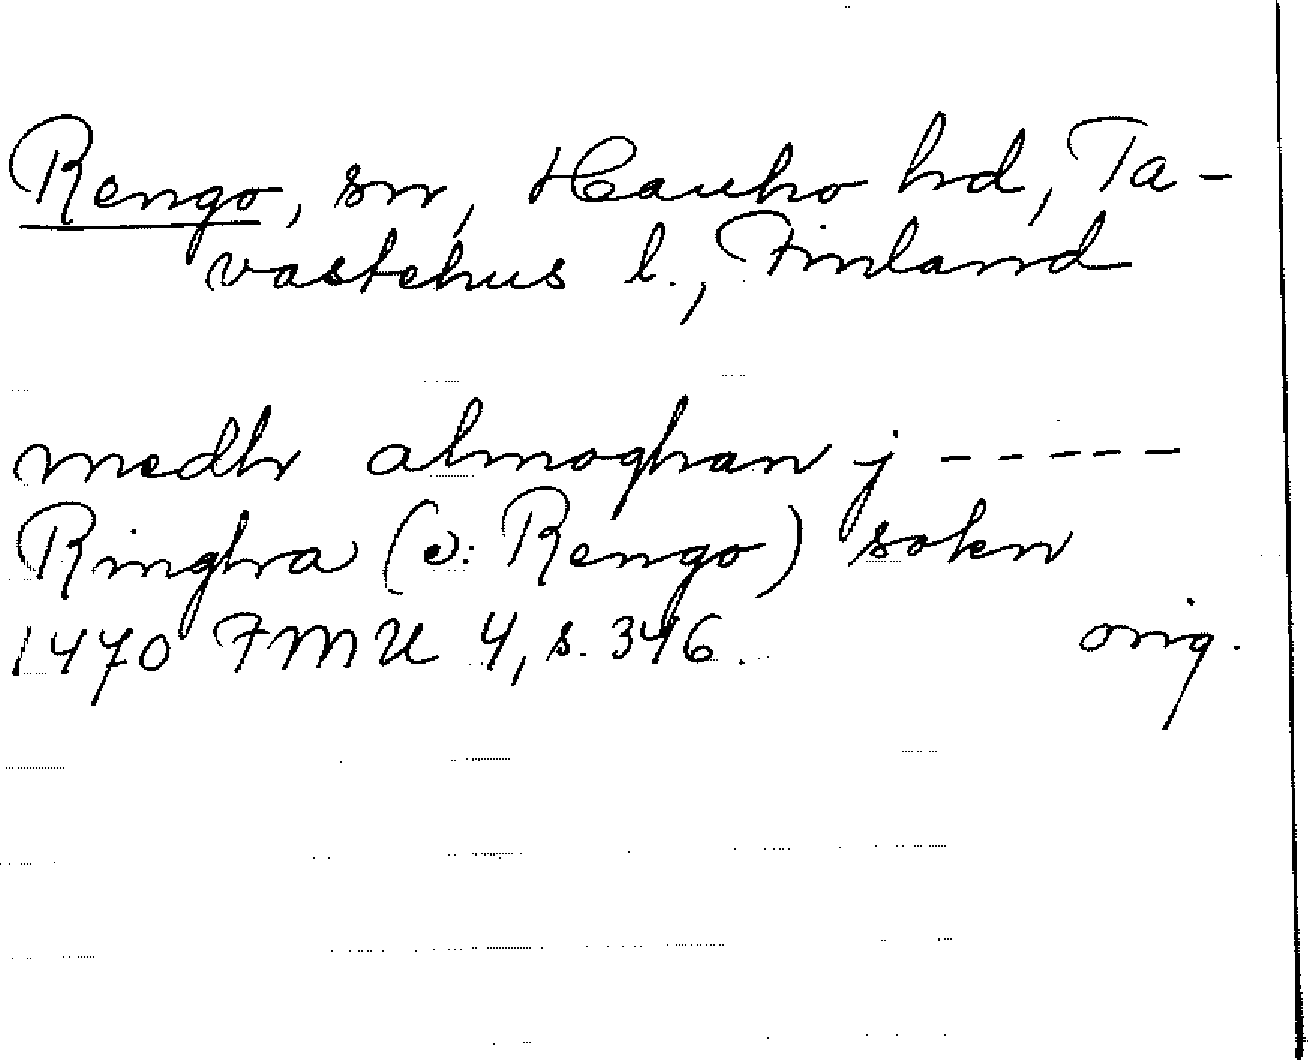 Rengo, sn, Hauho hd, Ta-
vastehus l., Finland
medh almoghan j -----
Ringha (ɔ: Rengo) sokn
1470 FMU 4, s. 346. orig.